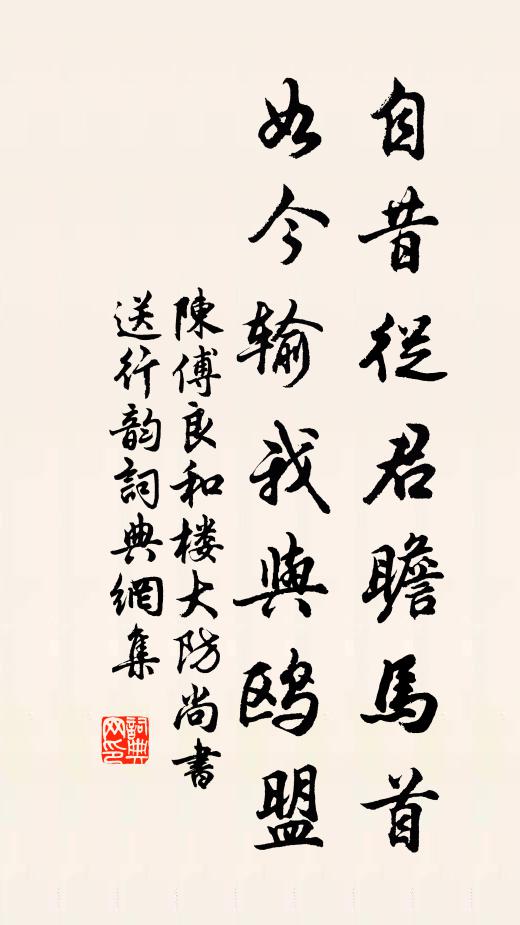 自昔從君瞻馬首
如今輸我與鸥盟
陳傅良和楼大防尚書
送行韵詞典網集
詞典網印